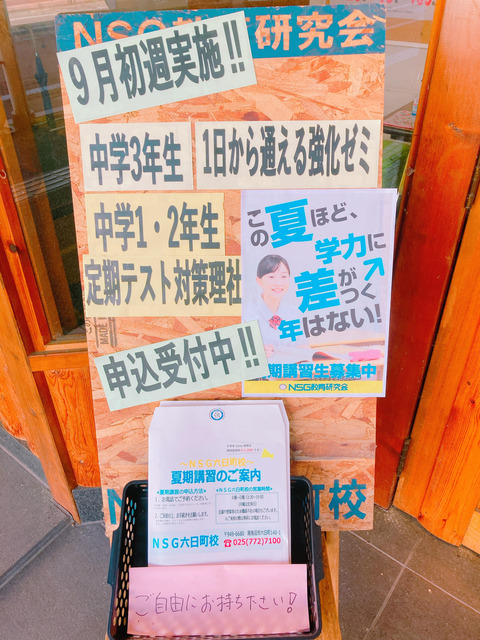 NSG教育研究会
9月初週実施!!
中学3年生
1日から通える強化ゼミ
中学1・2年生
定期テスト対策理社
申込受付中!!
この夏ほど、
学力に
差がつく
年はない!
期講習生募集中
NSG教育研究会
～NSG六日町校～
夏期講習のご案内
NSG六日町校
☎025(772)7100
町校
ご自由にお持ち下さい!